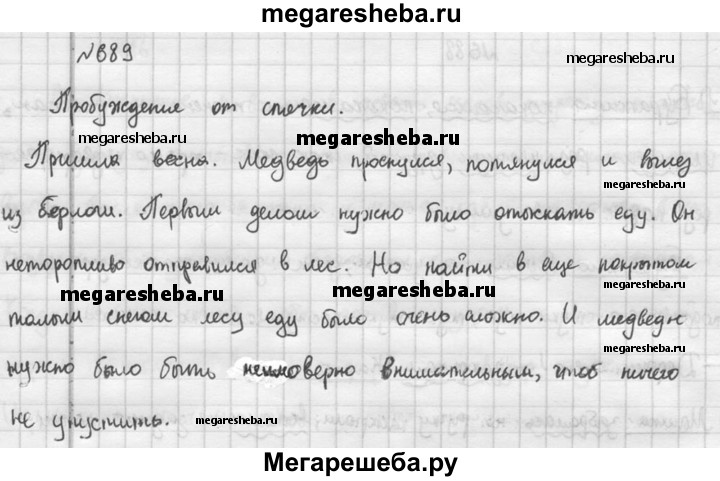 megaresheba.ru
№889
megaresheba.ru
Пробуждение от спячки.
megaresheba.ru megaresheba.ru
Пришла весна. Медведь проснулся, потянулся и вылез
megaresheba.ru
из берлоги. Первым делом нужно было отыскать еду. Он
неторопливо отправился в лес. Но найти в еще покрытом
megaresheba.ru megaresheba.ru megaresheba.ru
талым снегом лесу еду было очень сложно. И медведю
megaresheba.ru
нужно было быть неимоверно внимательным, чтоб ничего
не упустить. megaresheba.ru megaresheba.ru
Мегарешеба.ру